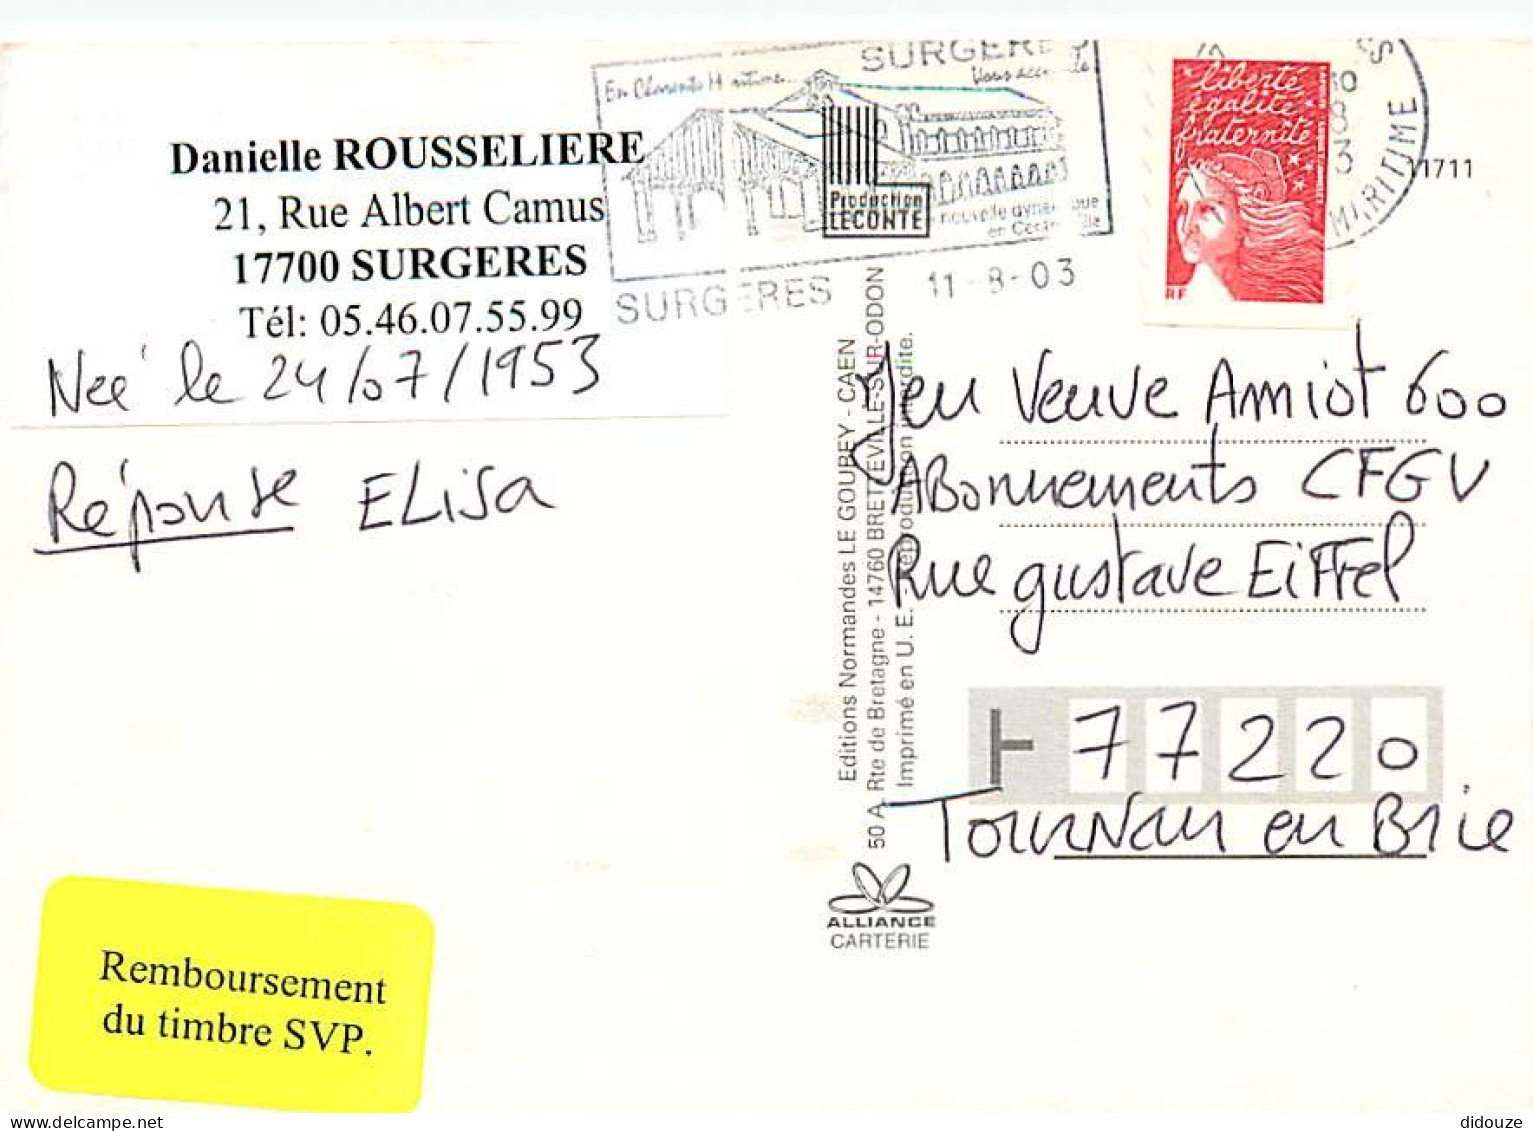 Danielle ROUSSELIERE
21, Rue Albert Camus
17700 SURGERES
Tél: 05.46.07.55.99
Neé le 24/07/1953
Réponse ELisa
Remboursement
du timbre SVP.
SURGERES
En Charente Maritime...
Vous accueille
nouvelle dynamique
en Centre Ville
SURGERES 11-8-03
Production
LECONTE
MARITIME
liberté
égalité
fraternité
RF
11711
Editions Normandes LE GOUBEY - CAEN
50 A, Rte de Bretagne - 14760 BRETTEVILLE-SUR-ODON
Imprimé en U. E. Reproduction interdite.
ALLIANCE
CARTERIE
Jeu Veuve Amiot 600
ABonnements CFGV
Rue gustave EiFFel
77220
Tournan en Brie
didouze
delcampe.net